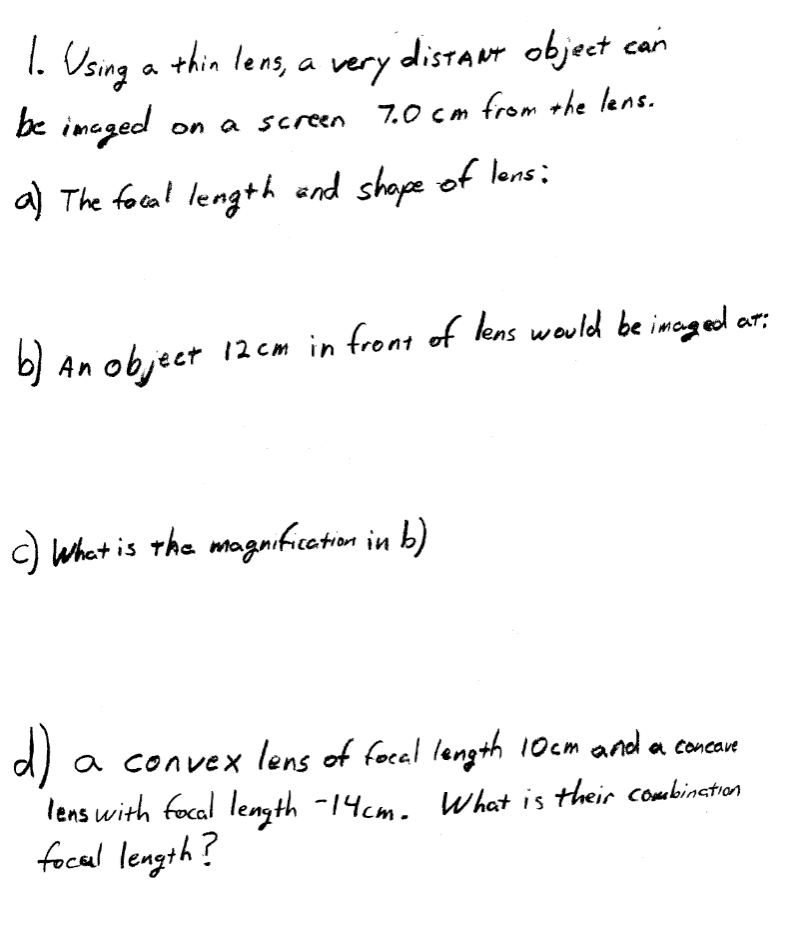 1. Using a thin lens, a very distant object can
be imaged on a screen 7.0 cm from the lens.
a) The focal length and shape of lens:
b) An object 12 cm in front of lens would be imaged at:
c) What is the magnification in b)
d) a convex lens of focal length 10cm and a concave
lens with focal length -14cm. What is their combination
focal length?